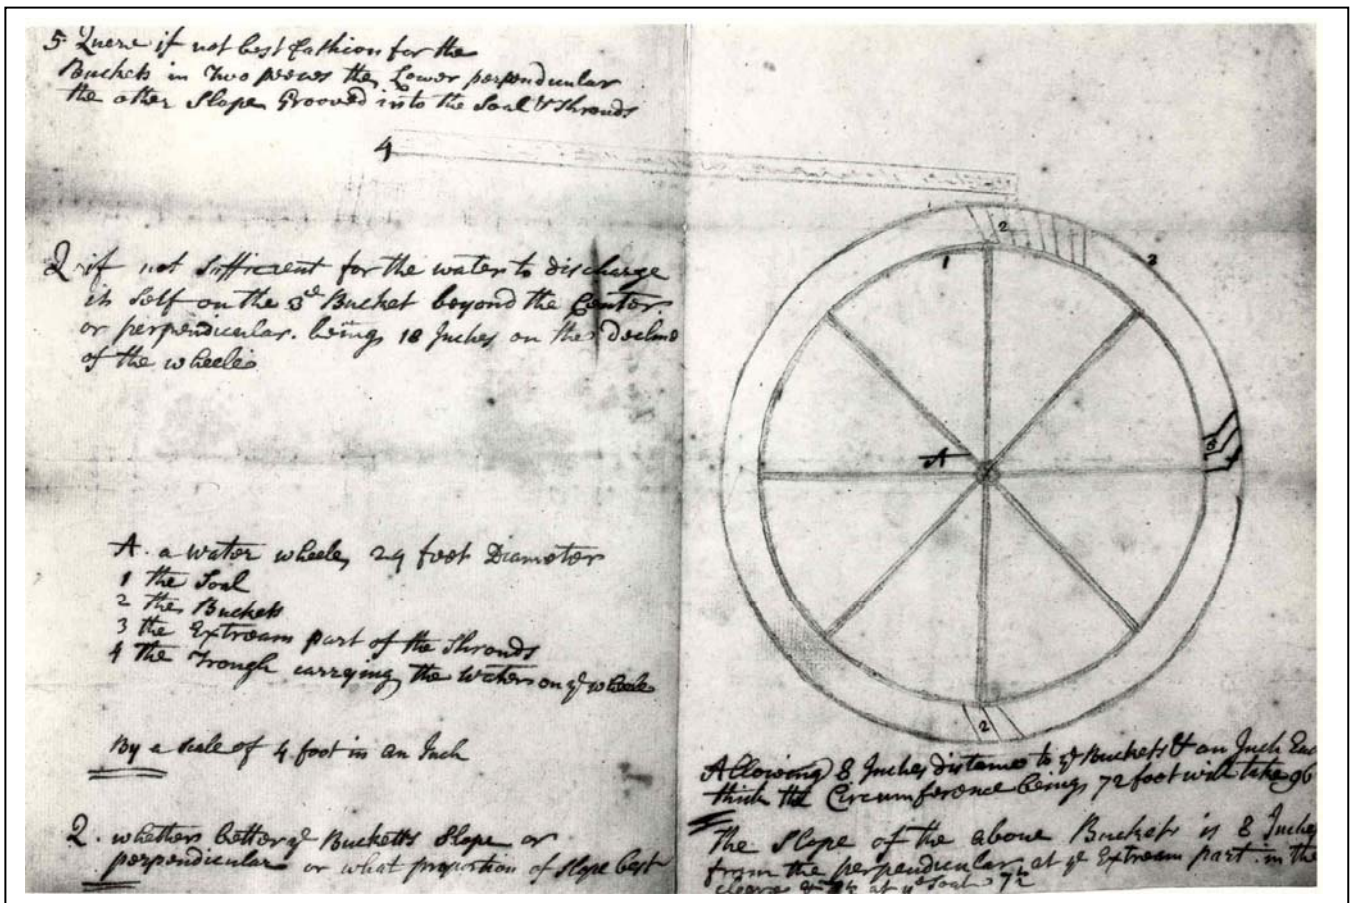 5 Quere if not best fashion for the
Buckets in Two peeces the Lower perpendicular
the other Slope Grooved into the Soal & Shrouds
4
Q if not sufficient for the water to discharge
its Self on the 3d Bucket beyond the Center
or perpendicular. being 18 Inches on the Decline
of the wheele
A. a water wheele, 24 foot Diameter
1 the Soal
2 the Buckets
3 the Extream part of the Shrouds
4 the Trough carrying the waters on ye wheele
By a scale of 4 foot in an Inch
Q. whether better ye Bucketts Slope or
perpendicular or what proportion of Slope best
2
1
3
A
5
2
Allowing 8 Inches distance to ye Buckets & an Inch
thick the Circumference being 72 foot will take 96
The Slope of the above Buckets is 8 Inches
from the perpendicular at ye Extream part in the
at ye Soal 7